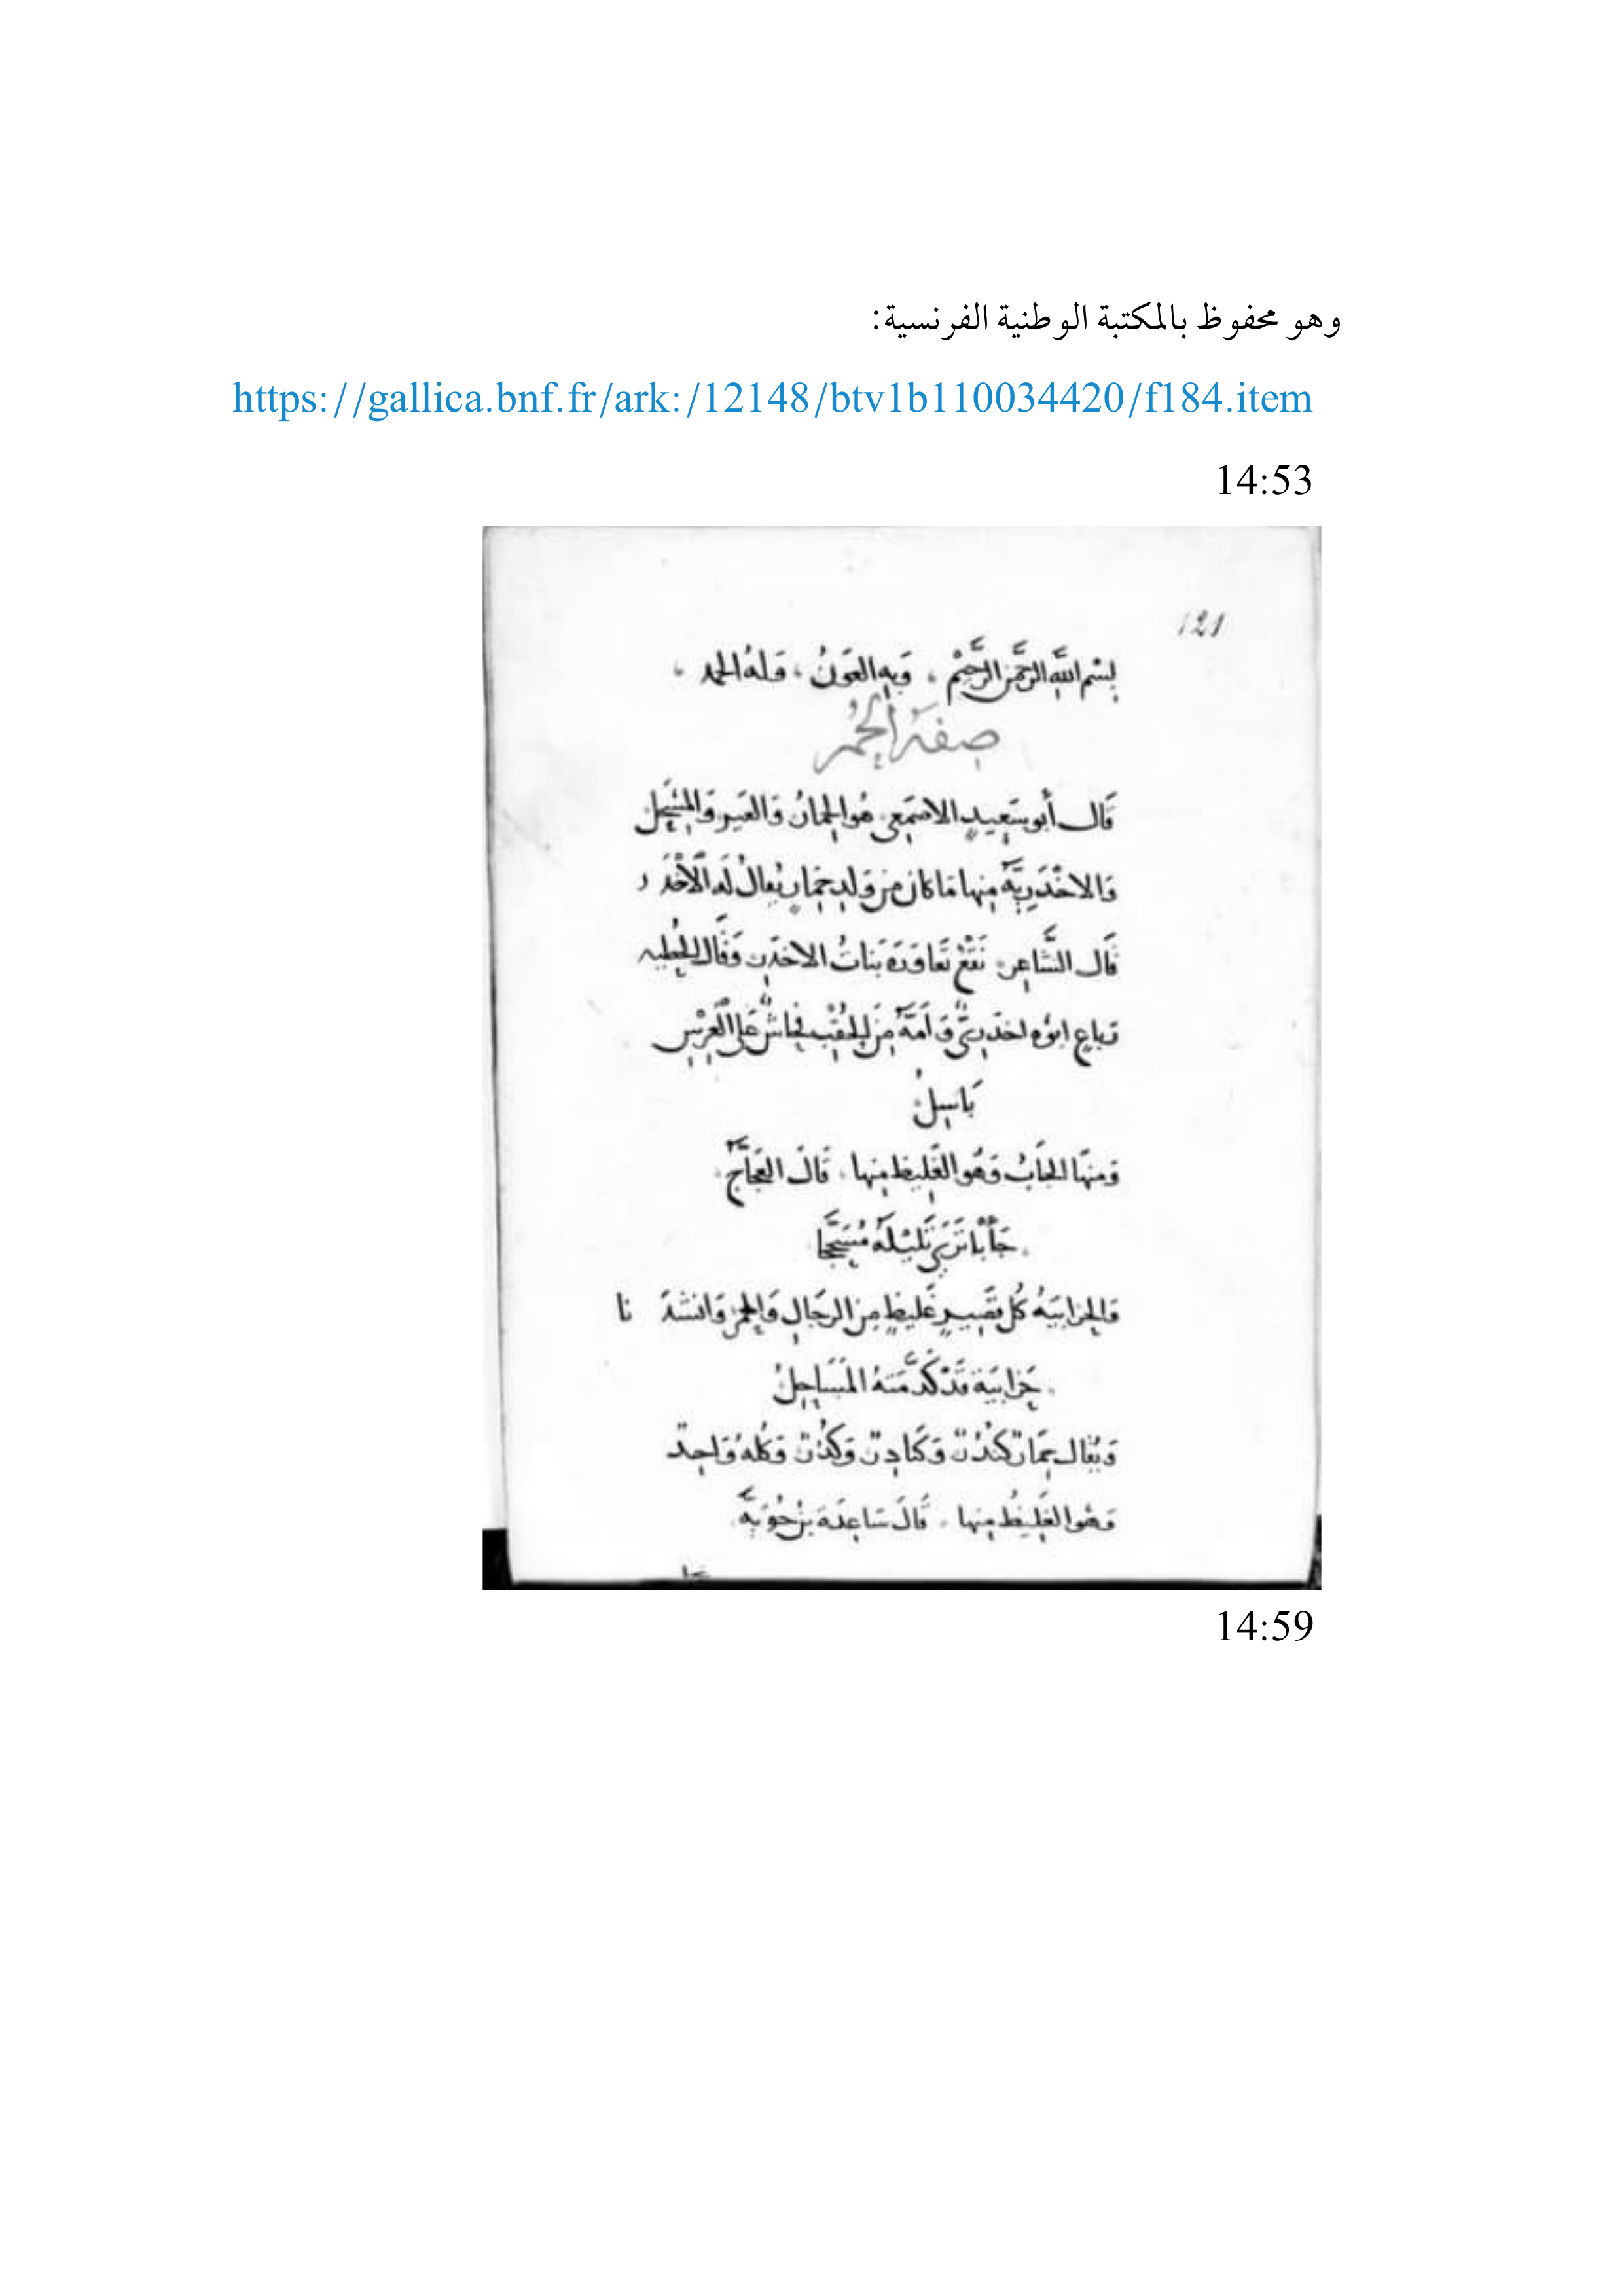 وهو محفوظ بالمكتبة الوطنية الفرنسية:
https://gallica.bnf.fr/ark:/12148/btv1b110034420/f184.item
14:53
121
بِسْمِ اللهِ الرَّحْمَنِ الرَّحِيْمِ، وَبِهِ العَوَنُ، وَلهُ الحمد،
صِفَةُ الحُمُر
قَال أبو سَعِيدٍ الاصمَعِي هُو الحِمَارُ وَالعَير وَالمِسْحَل
وَالاخْدَرِيَّةُ مِنها مَا كان مِن وَلدِ حِمَارٍ يُقالُ لَه الأخْدَر
قَال الشَّاعِر تَعَاوَرَهَ بَناتُ الاخدَر وَقَال الحُطيه
رَباعٍ ابوُه اخدَرِيٌّ وَامُّهُ مِنَ الحُقْبِ فحاشٌ عَلى العِرْسِ
بَاسِلُ
وَمنهَا الجَابُ وَهُو الغَلِيظ مِنها. قَالَ العَجَاّجُ.
. جَأْبًا تَرَى تَلِيْلَهُ مُسَحَّجَا
وَالحِزَابيَهُ كُل قَصِيرٍ غَليظٍ مِن الرجَالِ وَالحمُر وَانشدَ نا
. حَزَابيَة قَدْ كَدَّمَتهُ المَسَاحِلُ
وَيُقال حِمَارٌ كُنْدُرٌ وَكنَادِرٌ وَكُدُرٌ وَكلهُ وَاحِدٌ
وَهُو الغَلِيظُ مِنها. قَالَ سَاعِدَة بنُ جُوَيَّه